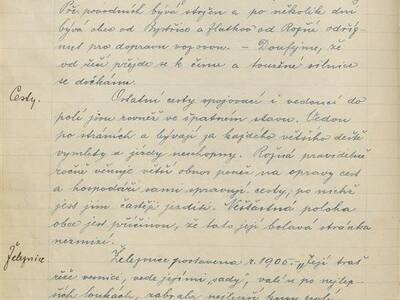 Při povodních bývá stržen a po několik dní
bývá obec od Bystřice a Hlutkov od Rožné odříz-
nut pro dopravu vozovou. – Doufejme, že
od řečí přejde se k činu a toužené silnice
se dočkáme.
Cesty.
Ostatní cesty spojovací i vedoucí do
polí jsou rovněž ve špatném stavu. Vedou
po stráních a bývají za každého většího deště
vymlety a jízdy neschopny. Rožná pravidelně
ročně věnuje větší obnos peněz na opravy cest
a hospodáři sami opravují cesty, po nichž
jest jim častěji jezditi. Nešťastná poloha
obce jest příčinou, že tato její bolavá stránka
nezmizí.
Železnice
Železnice postavena r. 1905. – "Její trať
níž vesnicí, vede jejími sady", valí po nejlep-
ších loukách, zabrala nejlepší kusy pole